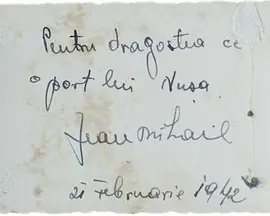 Pentru dragostea ce
o port lui Nusa
Jean Mihail
21 Februarie 1942